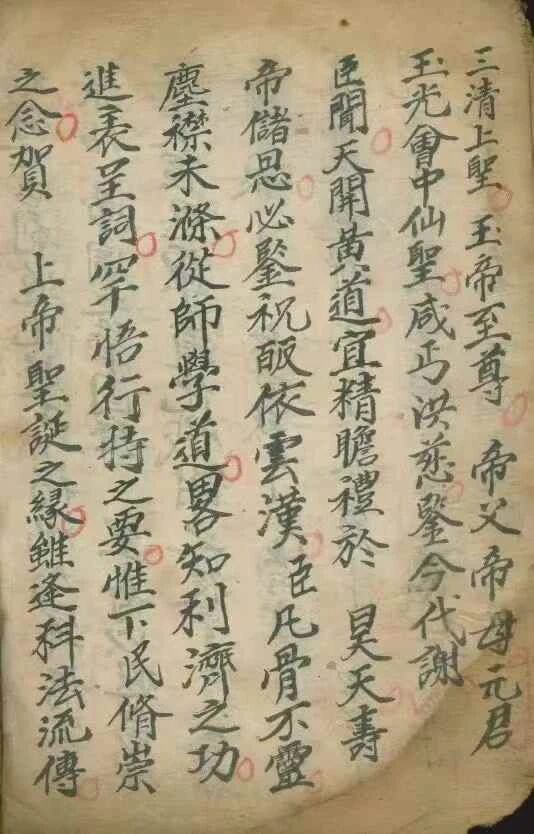 三清上聖 玉帝至尊 帝父帝母元君
玉光會中仙聖咸丐洪慈鑒今代謝
臣聞天開黄道宜精瞻禮於 昊天壽
帝儲恩必鑒祝皈依雲漢臣凡骨不靈
塵襟未滌從師學道畧知利濟之功
進表呈詞罕悟行持之要惟下民脩崇
之念賀 上帝聖誕之緣雖逢科法流傳